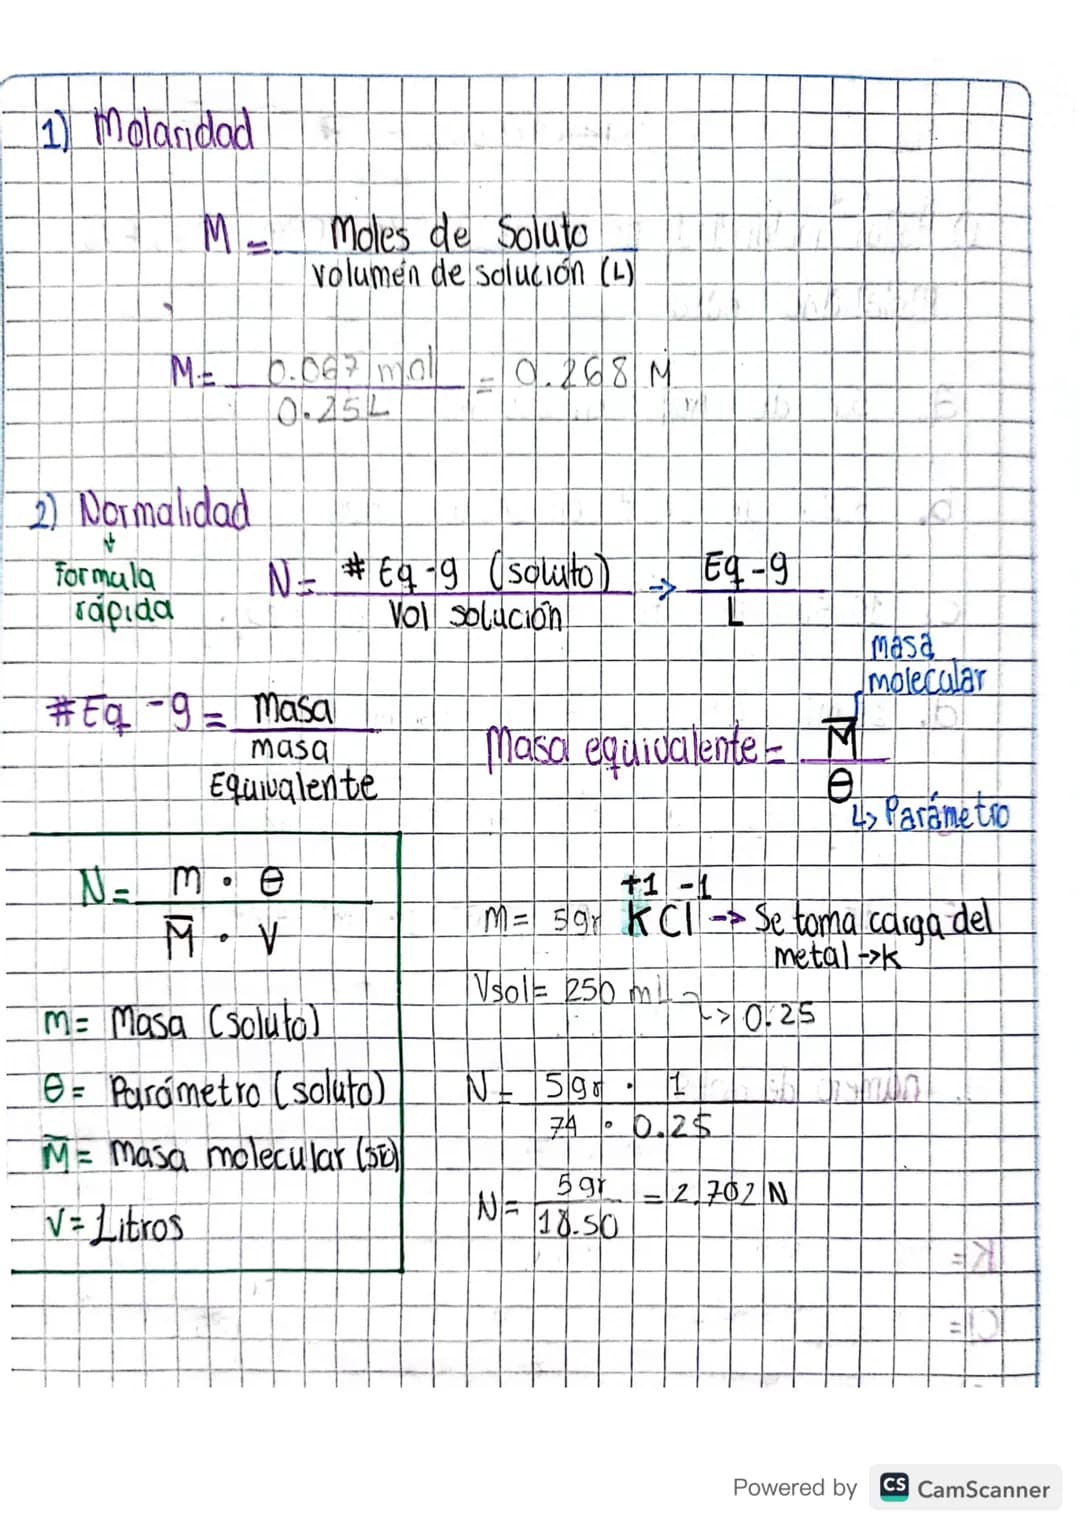 1) Molaridad
M = Moles de Soluto
volumen de solución (L)
M = 0.067 mol = 0.268 M
0.25L
2) Normalidad
Formula
rápida
N = # Eq-g (soluto) → Eq-g
Vol solución L
masa
molecular
#Eq-g = Masa
masa
Equivalente
Masa equivalente = M̅
θ
↳ Parámetro
N = m · θ
M̅ · V
m = Masa (soluto)
θ = Parámetro (soluto)
M̅ = Masa molecular (sto)
V = Litros
+1 -1
m = 5gr KCl -> Se toma carga del
metal -> K
Vsol = 250 ml
↳ 0.25
N = 5gr · 1
74 · 0.25
N = 5gr = 2,702 N
18.50
Powered by CS CamScanner